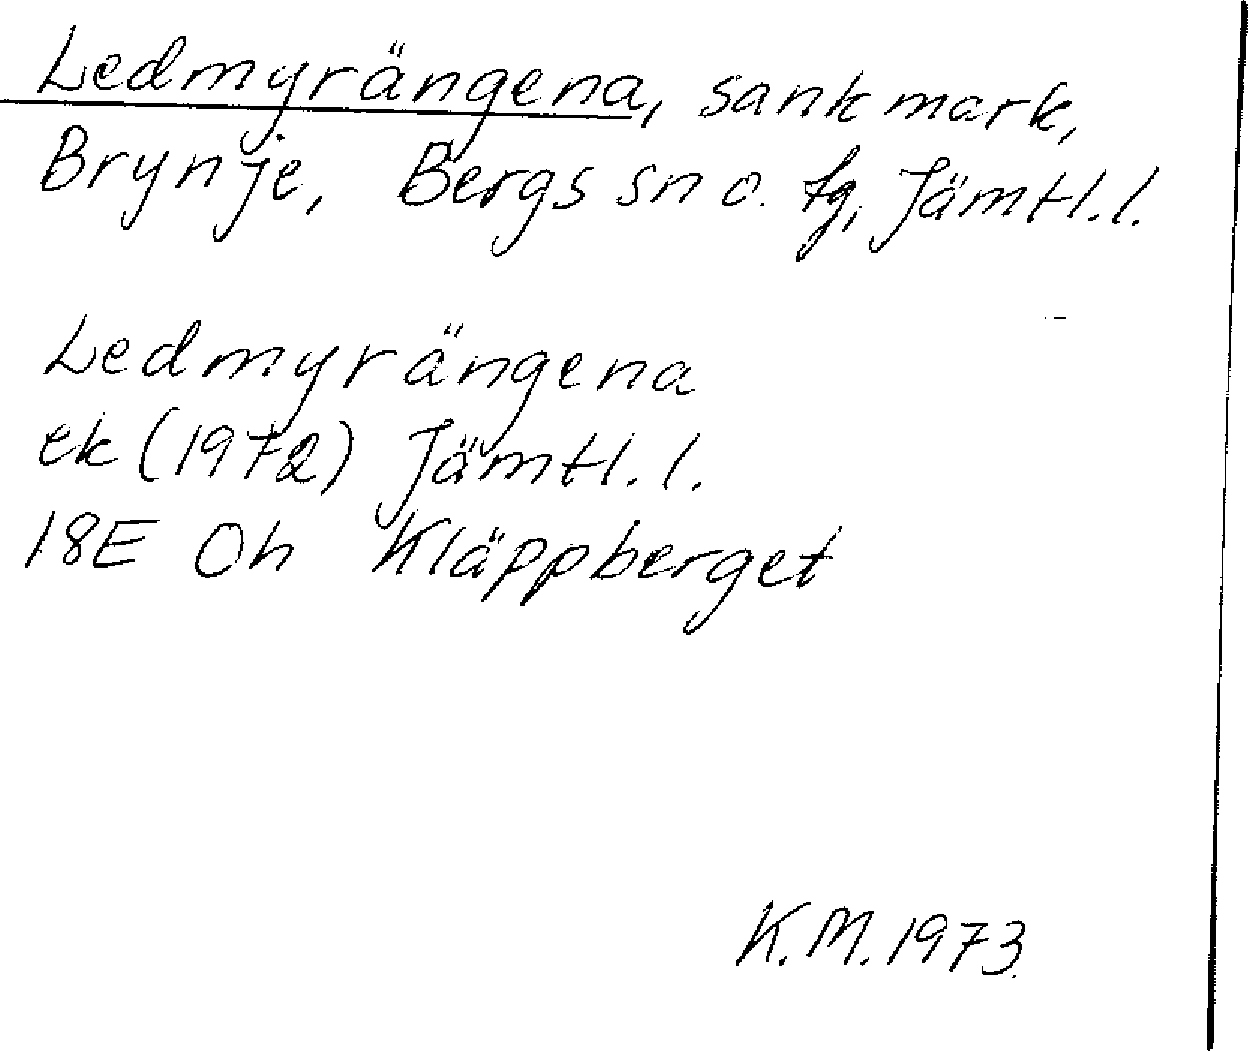 Ledmyrängena, sank mark,
Brynje, Bergs sn o. tg, Jämtl.l.
Ledmyrängena
ek (1972) Jämtl.l.
18E 0h Kläppberget
K.M. 1973.